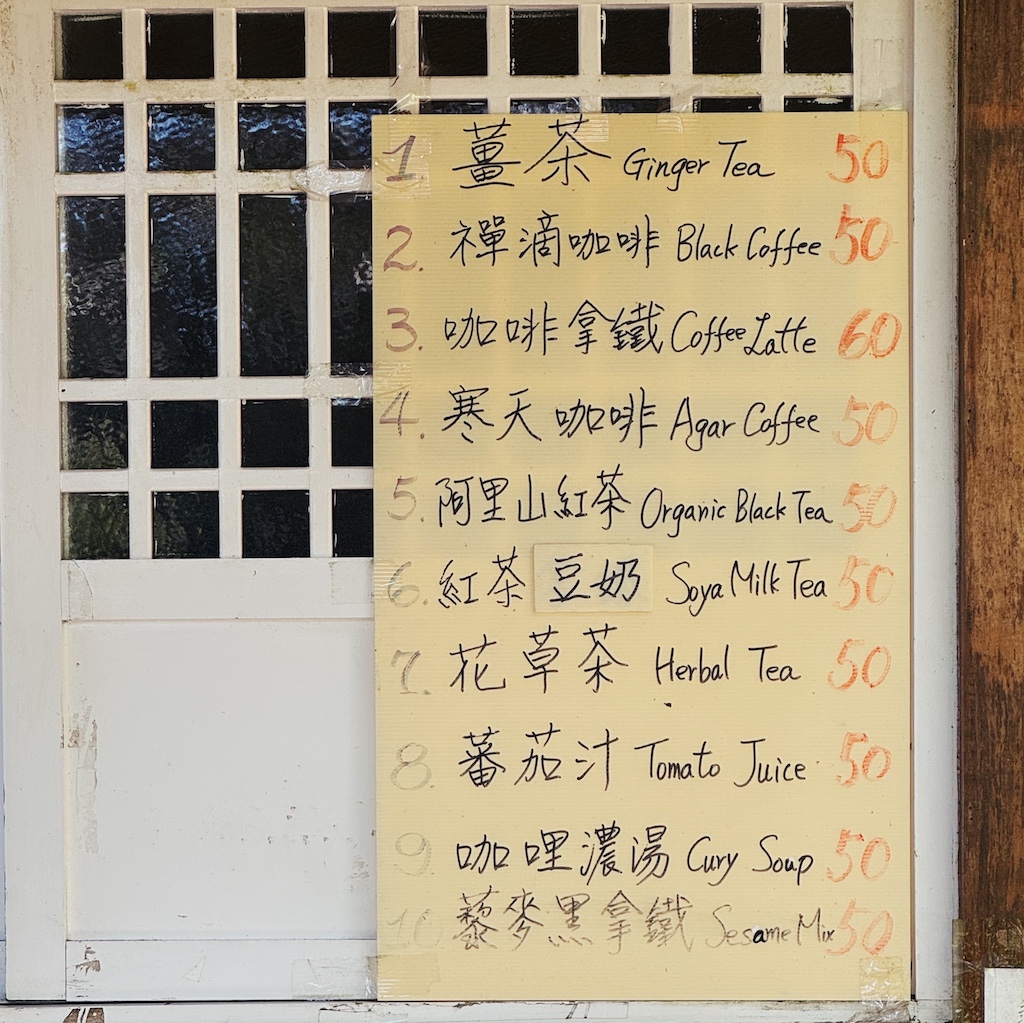 1. 薑茶 Ginger Tea 50
2. 禪滴咖啡 Black Coffee 50
3. 咖啡拿鐵 Coffee Latte 60
4. 寒天咖啡 Agar Coffee 50
5. 阿里山紅茶 Organic Black Tea 50
6. 紅茶豆奶 Soya Milk Tea 50
7. 花草茶 Herbal Tea 50
8. 蕃茄汁 Tomato Juice 50
9. 咖哩濃湯 Cury Soup 50
10 藜麥黑拿鐵 Sesame Mix 50